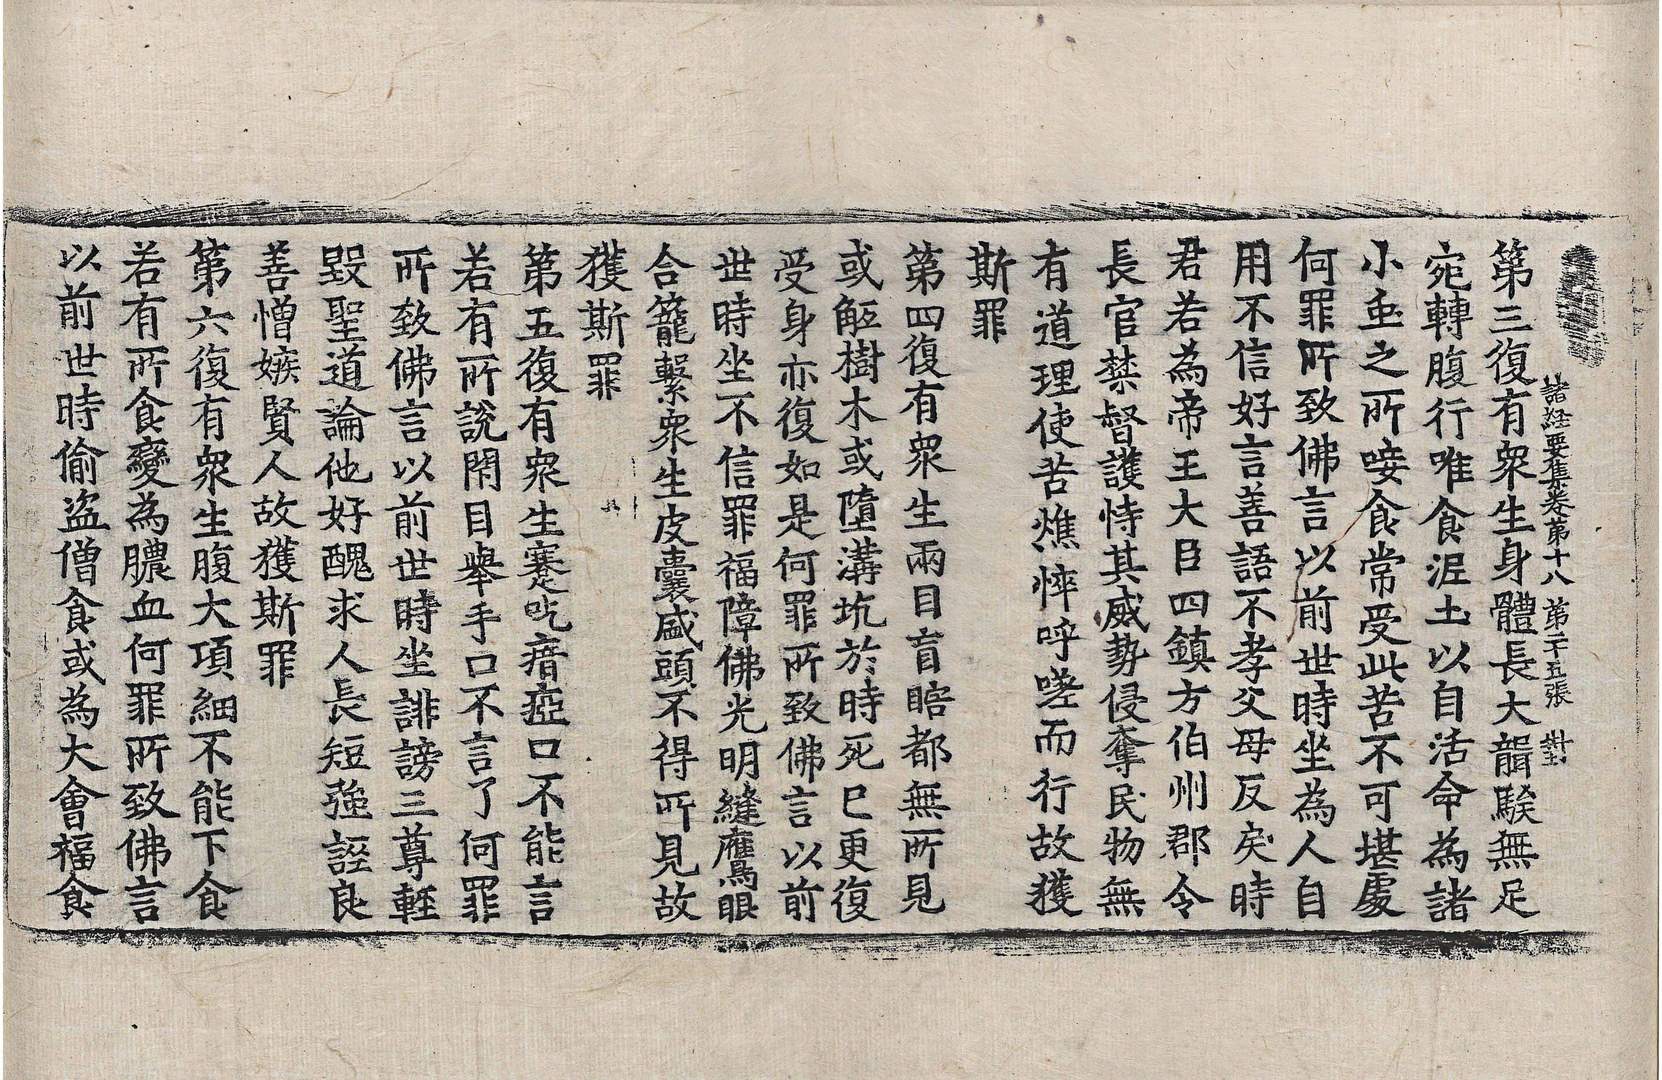 諸経要集卷第十八 第二十五張 對
第三復有衆生身體長大聾騃無足
宛轉腹行唯食泥土以自活命為諸
小虫之所唼食常受此苦不可堪處
何罪所致佛言以前世時坐為人自
用不信好言善語不孝父母反戾時
君若為帝王大臣四鎮方伯州郡令
長官禁督護恃其威勢侵奪民物無
有道理使苦憔悴呼嗟而行故獲
斯罪
第四復有衆生兩目盲瞎都無所見
或觝樹木或墮溝坑於時死巳更復
受身亦復如是何罪所致佛言以前
世時坐不信罪福障佛光明縫鷹眼
合籠繫衆生皮囊盛頭不得所見故
獲斯罪
第五復有衆生蹇吃瘖瘂口不能言
若有所說閇目舉手口不言了何罪
所致佛言以前世時坐誹謗三尊輕
毀聖道論他好醜求人長短強誣良
善憎嫉賢人故獲斯罪
第六復有衆生腹大項細不能下食
若有所食變為膿血何罪所致佛言
以前世時偷盜僧食或為大會福食